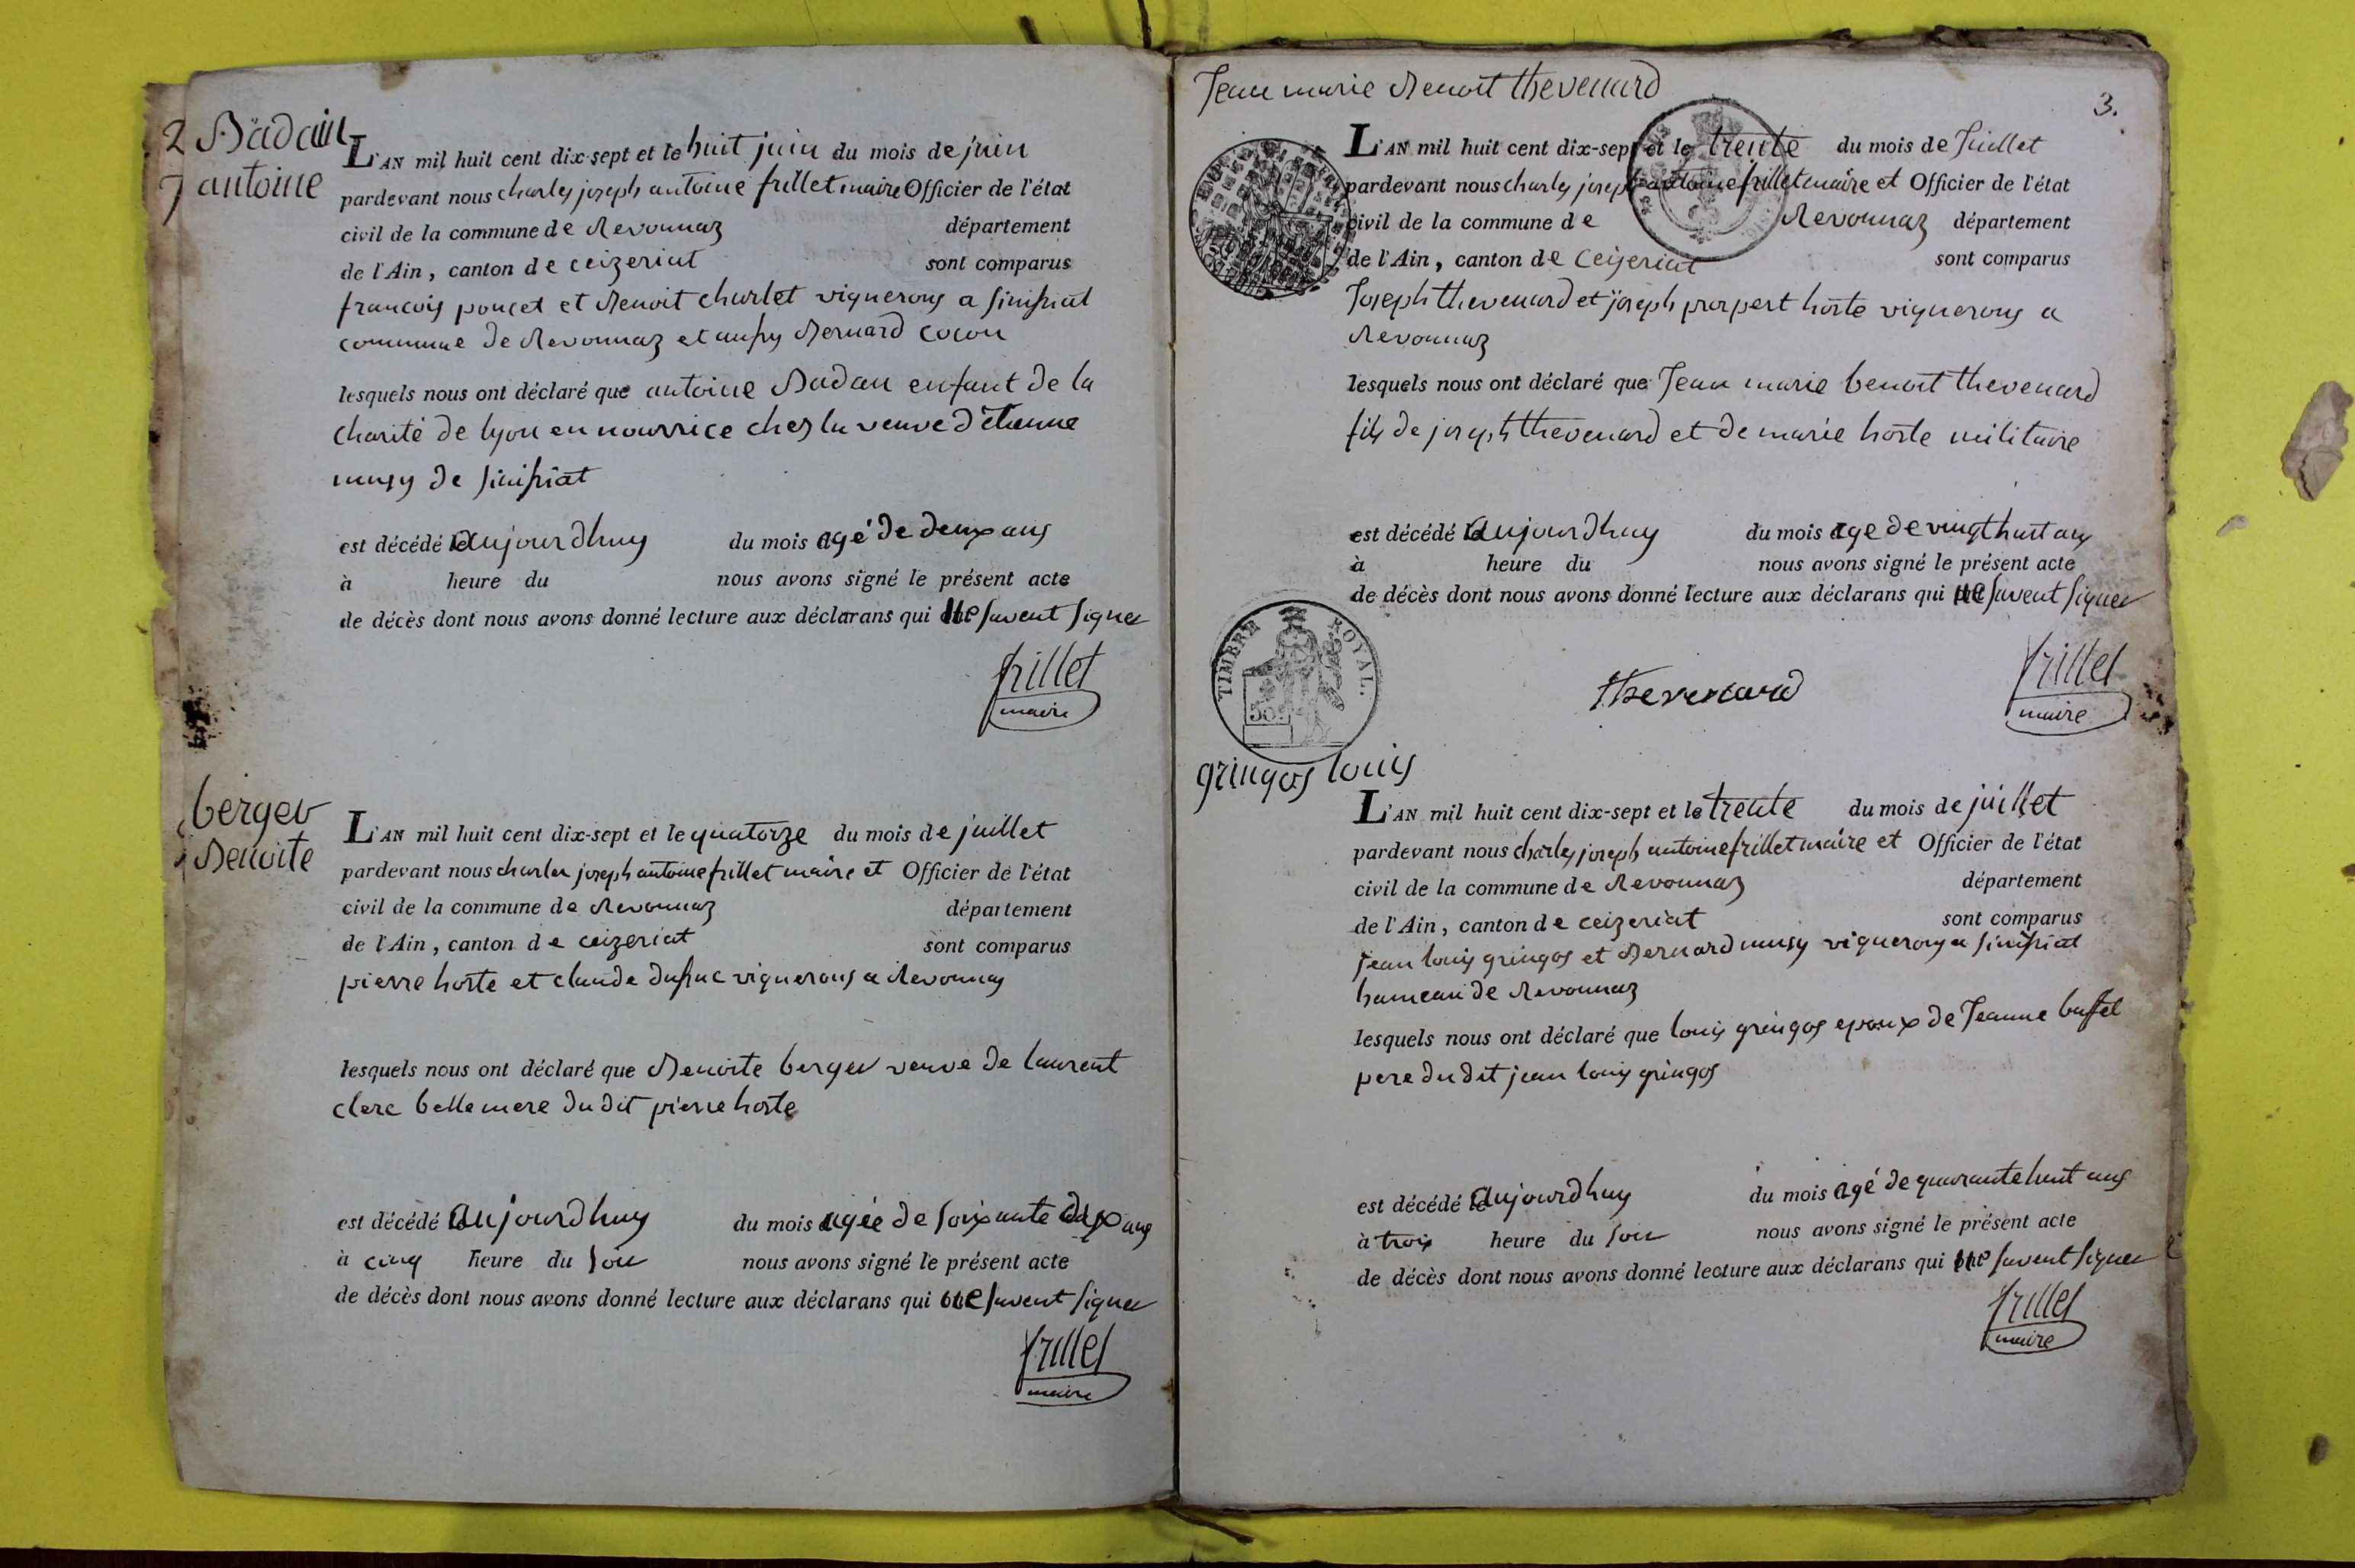 2 Badain
7 antoine
L'AN mil huit cent dix-sept et le huit juin du mois de juin
pardevant nous charles joseph antoine frillet maire Officier de l'état
civil de la commune de Revonnaz département
de l'Ain, canton de ceizeriat sont comparus
francois poncet et Benoit charlet vignerons a Sinissiat
commune de Revonnaz et aussy Bernard cocon
lesquels nous ont déclaré que antoine Badan enfant de la
charité de lyon en nourrice chez la veuve d'étienne
musy de Sinissiat
est décédé aujourdhuy du mois agé de deux ans
à heure du nous avons signé le présent acte
de décès dont nous avons donné lecture aux déclarans qui ne savent signer
frillet
maire
berger
Benoite
L'AN mil huit cent dix-sept et le quatorze du mois de juillet
pardevant nous charles joseph antoine frillet maire et Officier de l'état
civil de la commune de Revonnaz département
de l'Ain, canton de ceizeriat sont comparus
pierre horte et claude vignerons a Revonnaz
lesquels nous ont déclaré que Benoite berger veuve de laurent
clerc belle mere du dit pierre horte
est décédé aujourdhuy du mois agée de soixante dix ans
à cinq heure du soir nous avons signé le présent acte
de décès dont nous avons donné lecture aux déclarans qui ne savent signer
frillet
maire
Jean marie Benoit thevenard
3.
L'AN mil huit cent dix-sept et le trente du mois de Juillet
pardevant nous charles joseph antoine frillet maire et Officier de l'état
civil de la commune de Revonnaz département
de l'Ain, canton de Ceizeriat sont comparus
Joseph thevenard et joseph prospert horte vignerons a
Revonnaz
lesquels nous ont déclaré que Jean marie benoit thevenard
fils de joseph thevenard et de marie horte militaire
est décédé aujourdhuy du mois age de vingt huit ans
à heure du nous avons signé le présent acte
de décès dont nous avons donné lecture aux déclarans qui ne savent signer
TIMBRE ROYAL.
thevenard
frillet
maire
gringos louis
L'AN mil huit cent dix-sept et le trente du mois de juillet
pardevant nous charles joseph antoine frillet maire et Officier de l'état
civil de la commune de Revonnaz département
de l'Ain, canton de ceizeriat sont comparus
Jean louis gringos et Bernard musy vignerons a Sinissiat
hameau de Revonnaz
lesquels nous ont déclaré que louis gringos epoux de Jeanne
pere du dit jean louis gringos
est décédé le aujourdhuy du mois agé de quarante huit ans
à trois heure du soir nous avons signé le présent acte
de décès dont nous avons donné lecture aux déclarans qui ne savent signer
frillet
maire